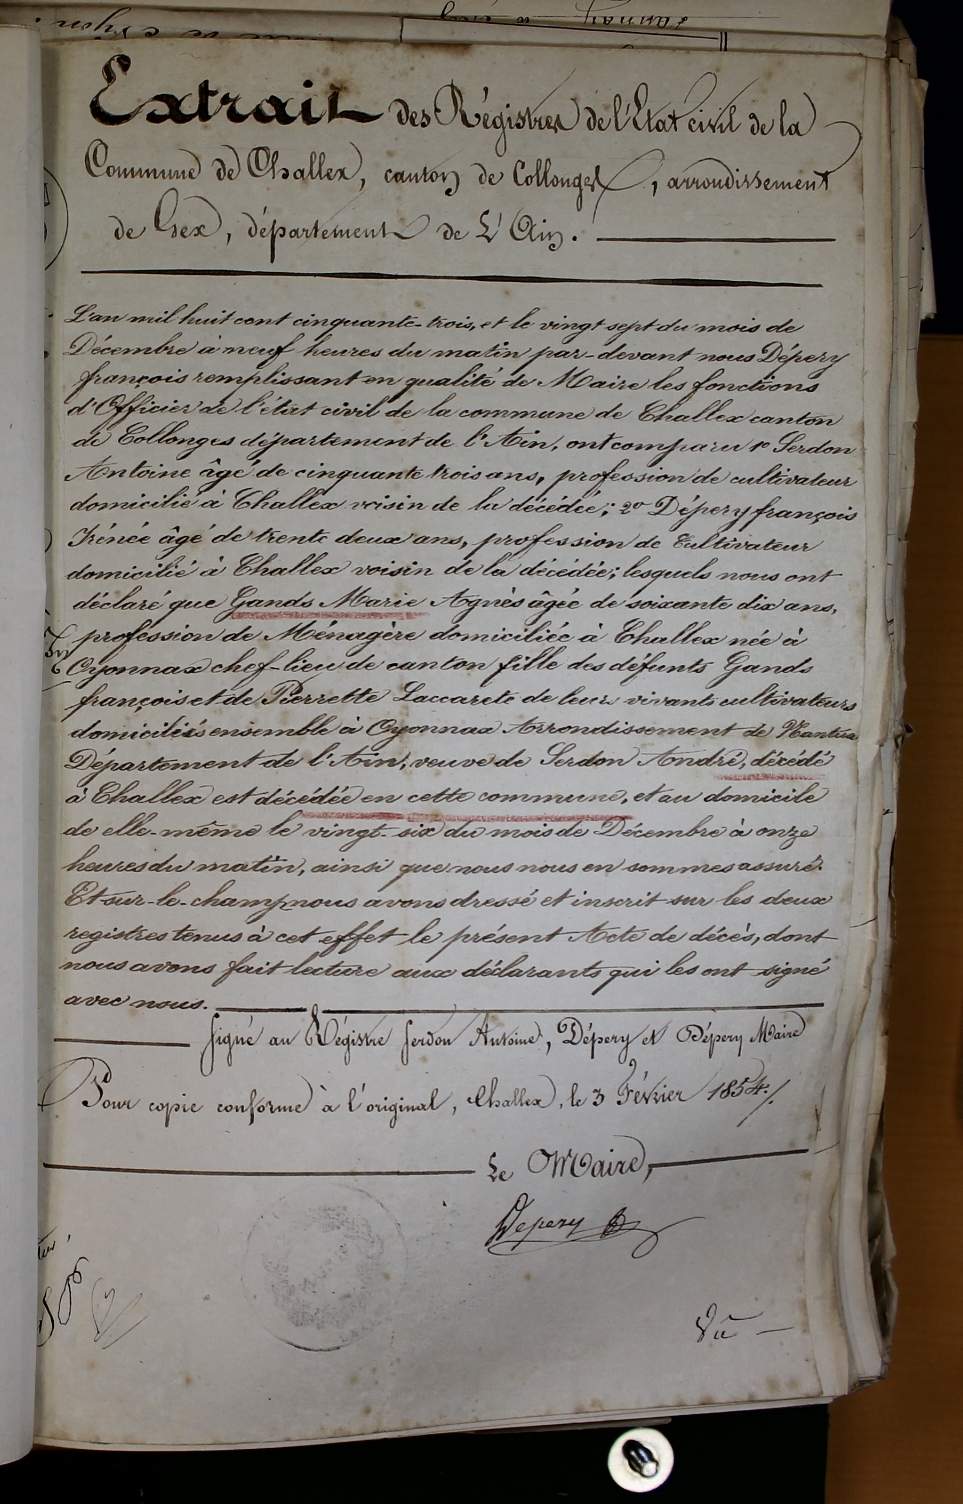 Extrait des Régistres de l'Etat civil de la
Commune de Challex, canton de Collonges, arrondissement
de Gex, département de L'Ain.
L'an mil huit cent cinquante-trois, et le vingt sept du mois de
Décembre à neuf heures du matin par-devant nous Dépery
françois remplissant en qualité de Maire les fonctions
d'Officier de l'état civil de la commune de Challex canton
de Collonges département de l'Ain, ont comparu 1º Serdon
Antoine âgé de cinquante trois ans, profession de cultivateur
domicilié à Challex voisin de la décédée; 2º Dépery françois
Irénée âgé de trente deux ans, profession de Cultivateur
domicilié à Challex voisin de la décédée; lesquels nous ont
déclaré que Gands Marie Agnès âgée de soixante dix ans,
profession de Ménagère domiciliée à Challex née à
Oyonnax chef-lieu de canton fille des défunts Gands
françois et de Pierrette Laccarete de leurs vivants cultivateurs
domiciliés ensemble à Oyonnax Arrondissement de Nantua
Département de l'Ain, veuve de Serdon André, décédé
à Challex est décédée en cette commune, et au domicile
de elle-même le vingt-six du mois de Décembre à onze
heures du matin, ainsi que nous nous en sommes assuré.
Et sur-le-champ nous avons dressé et inscrit sur les deux
registres tenus à cet effet le présent Acte de décès, dont
nous avons fait lecture aux déclarants qui les ont signé
avec nous.
Signé au Régistre Serdon Antoine, Dépery et Dépery Maire
Pour copie conforme à l'original, Challex, le 3 Février 1854.
Le Maire,
Depery
Vu